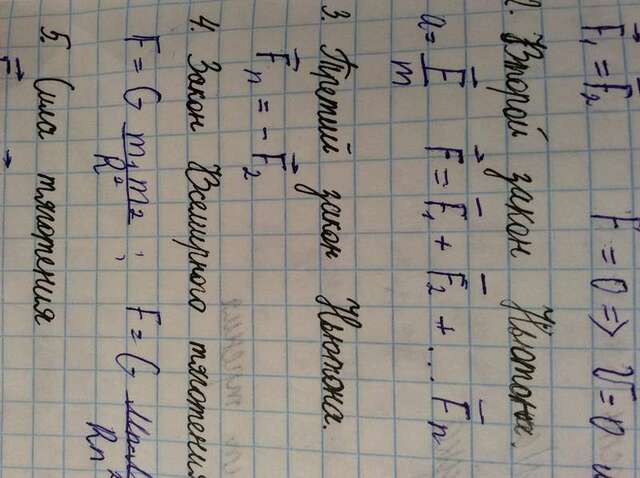 F₁ = F₂ F = 0 ⇒ V = 0
2. Второй закон Ньютона.
a = F/m F = F₁ + F₂ + ... Fn
3. Третий закон Ньютона.
Fn = -F₂
4. Закон Всемирного тяготения
F = G m₁m₂/R² ; F = G
5. Сила тяготения